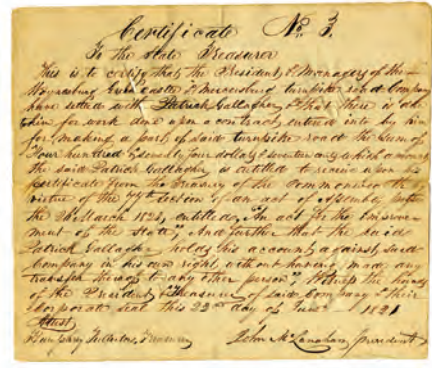 Certificate No. 3.
To the State Treasurer
This is to certify that the President & Managers of the
Waynesburg Greencastle & Mercersburg turnpike road Company
have settled with Patrick Gallagher & that there is due
him for work done upon a contract entered into by him
for making a part of said turnpike road the Sum of
Four hundred & seventy four dollars & seventeen cents which amount
the said Patrick Gallagher is entitled to receive upon his
certificate from the Treasury of the Commonwealth by
virtue of the fifth section of an act of Assembly passed
the 26 March 1821, entitled, "An act for the Improve-
ment of the State," And further that the said
Patrick Gallagher holds his account against said
Company in his own right, without having made any
transfer thereof to any other person, Witness the hands
of the President & Treasurer of said Company & their
Corporate Seal this 22d day of June 1821
Attest
Humphrey Fullerton, Treasurer John McLanahan, President